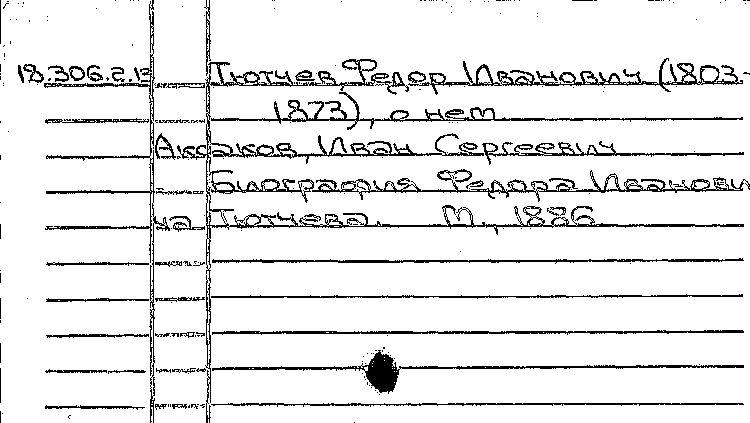 18.306.2.13 Тютчев, Федор Иванович (1803-
1873), о нем
Аксаков, Иван Сергеевич
Биография Федора Иванови
ча Тютчева. М., 1886